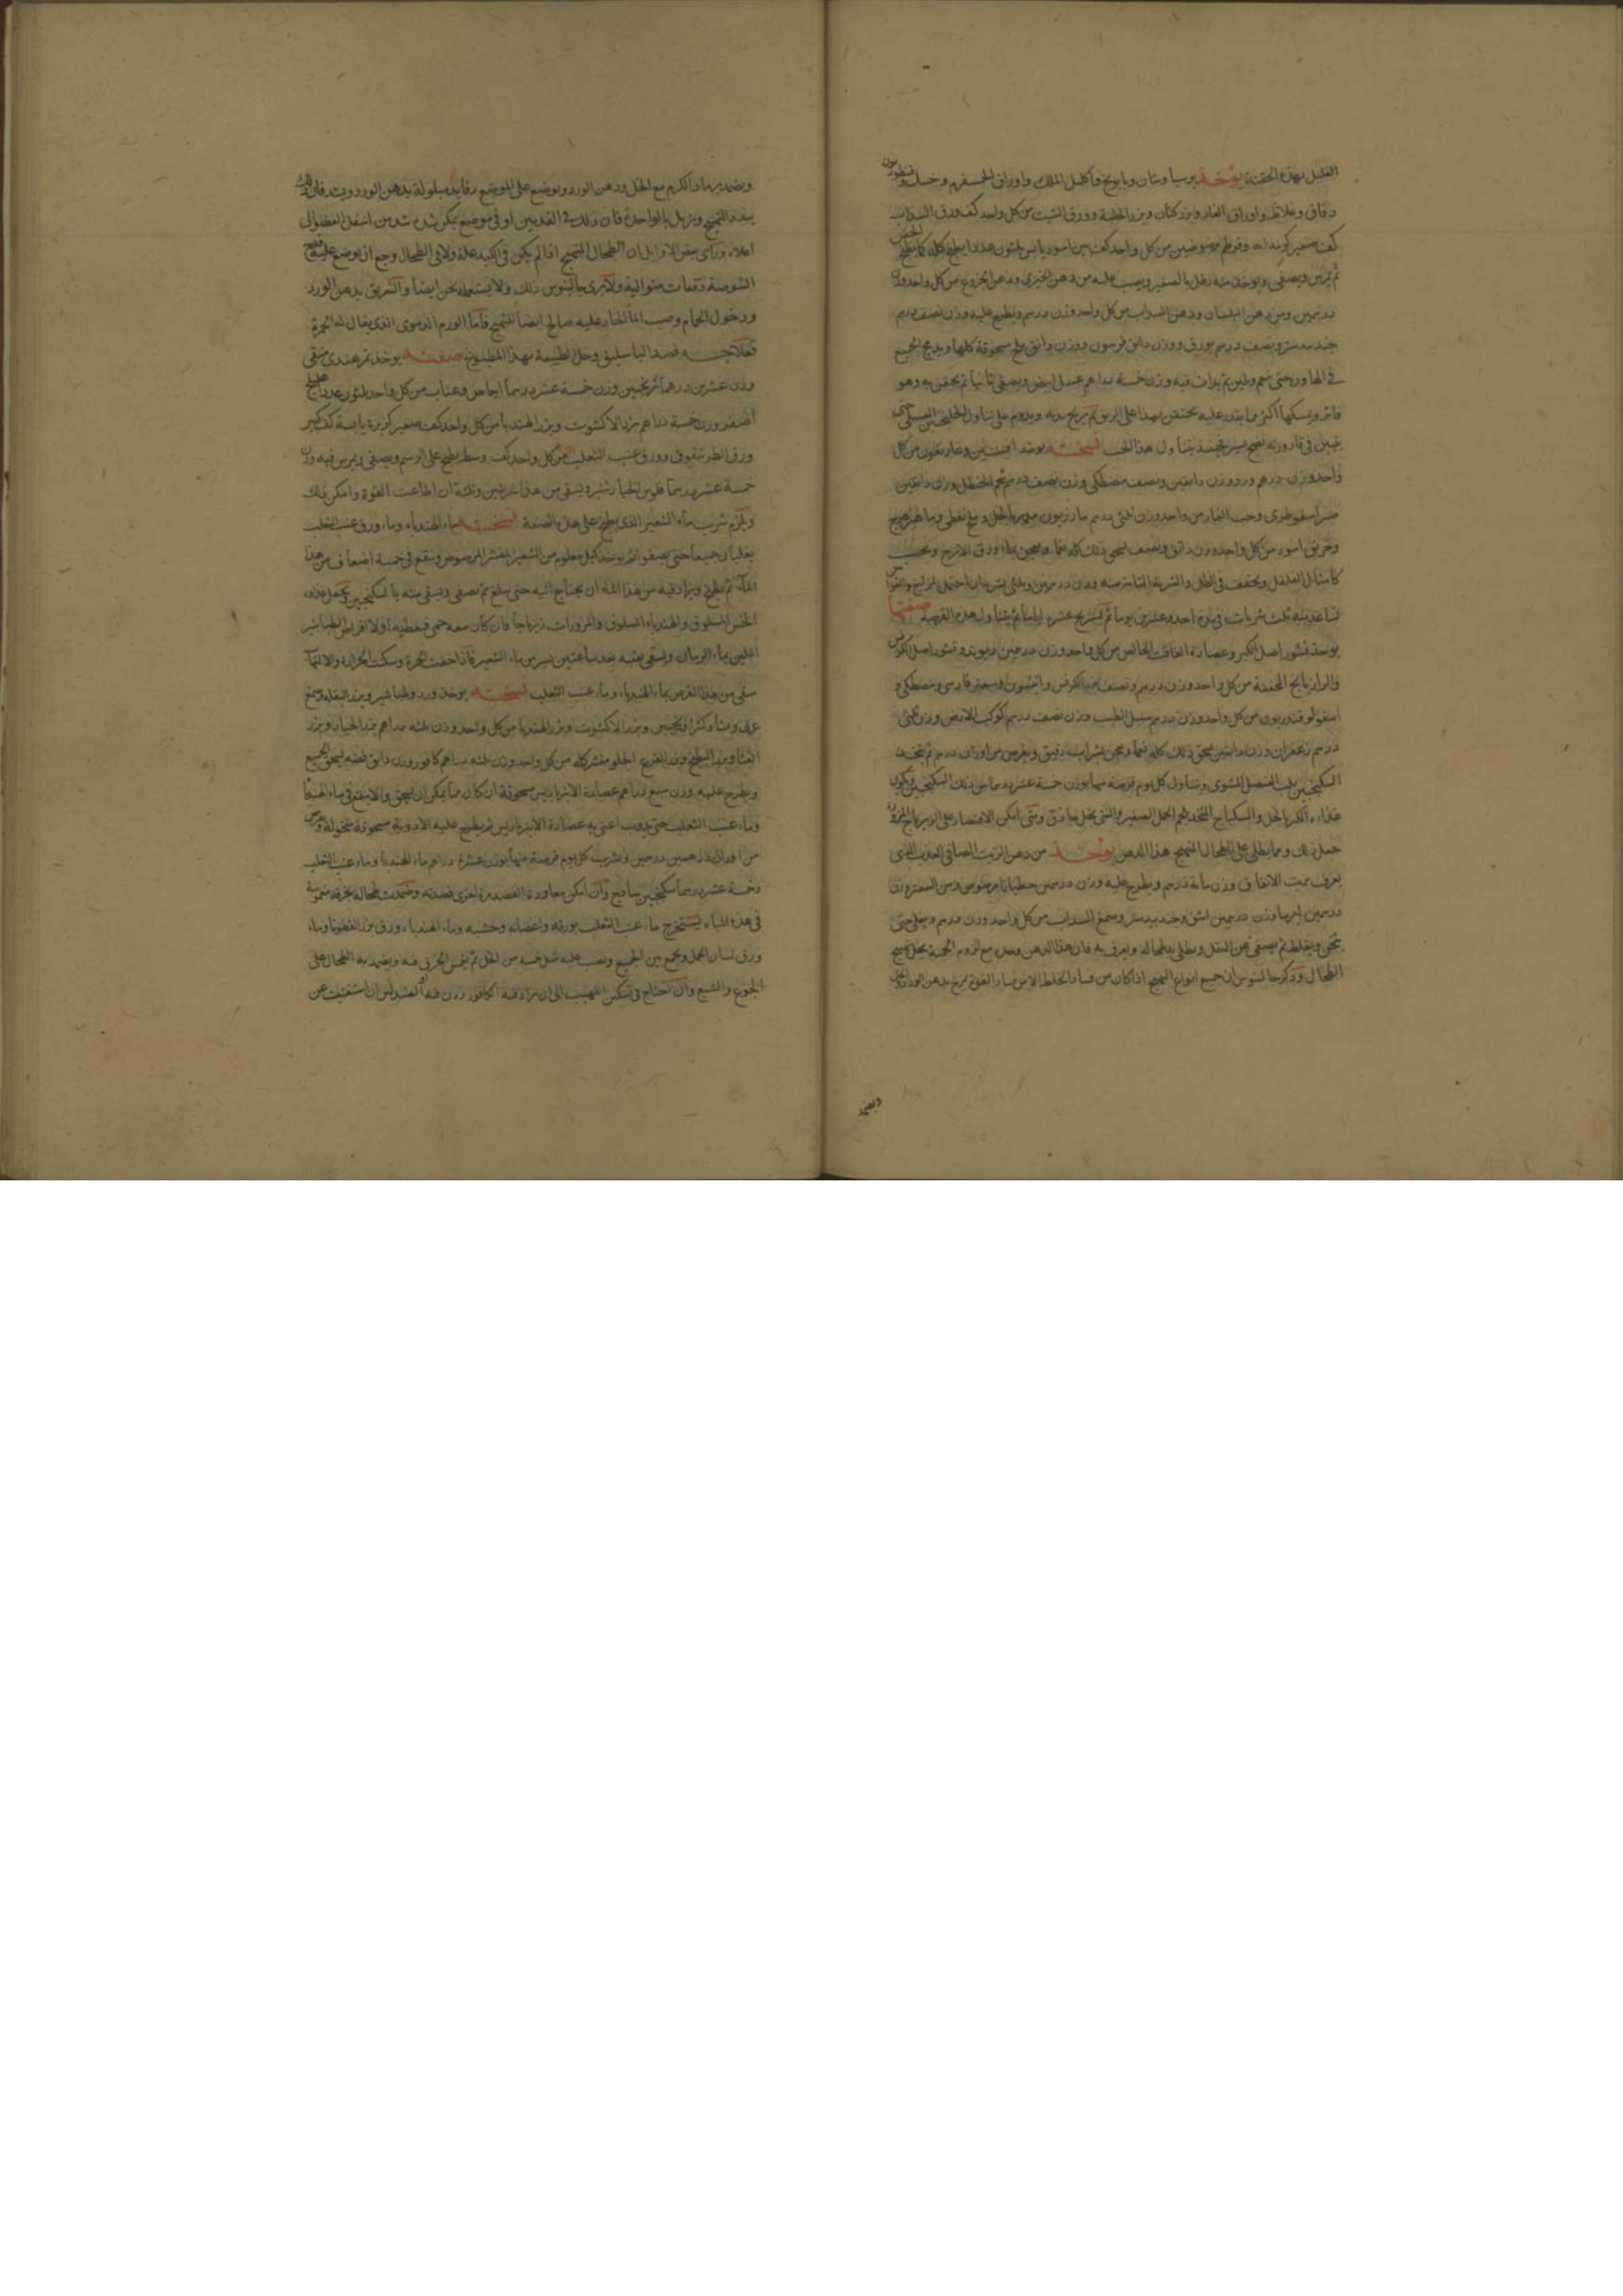 القليل بهذه الحقنة يؤخذ برسياوشان وبابونج واكليل الملك واوراق
دقاق وغلاظ واوراق الغار وبزر كتان وبزر الحلبة وورق الشبت من كل واحد كف ورق السداب
كف صغير وقرطم مرضوضين من كل واحد كف تين اسود يابس عددا يطبخ كله كما يطبخ الحقن
ثم يمرس ويصفى ويؤخذ منه رطل بالصغير ويصب عليه من دهن الخيرى ودهن الخروع من كل واحد وزن
درهمين ومن دهن البلسان ودهن السداب من كل واحد وزن درهم ويطرح عليه وزن نصف درهم
جندبيدستر ونصف درهم بورق ووزن دانق فربيون ووزن دانق ملح مسحوقة كلها ويدعج الجميع
في الهاون حتى ثم يداف فيه وزن خمسة دراهم عسل ابيض ويصفى ثانيا ثم يحقن به وهو
فاتر ويمسكها اكثر مما يقدر عليه يحتقن بهذا على الريق ثم يريح بدنه ويدوم على تناول الجلنجبين العسلى حتى
يتبين في قارورته نضج يسير فحينئذ يتناول هذا الحب نسخته يوخذ افسنتين وغاريقون من كل
واحد وزن درهم ورد وزن دانقين ونصف مصطكى وزن نصف درهم شحم الحنظل وزن دانقين
صبر اسقوطرى وحب الغار من واحد وزن ثلثى درهم مازريون مدبر بالخل وملح نفطى وماهيزهرج
وخربق اسود من كل واحد وزن دانق ونصف يسحق ذلك كله نعما ويعجن بماء ورق الاترج ويحبب
كامثال الفلفل ويجفف في الظل والشربة التامة منه وزن درهمين وثلثى
ثلث شربات في مدة احد وعشرين يوما ثم يستريح عشرة ايام ثم يتناول هذه القرصة صفتها
يوخذ قشور اصل الكبر وعصارة الغافث الخالص من كل واحد وزن درهمين ريوند وقشور اصل الكرفس
والرازيانج المجففة من كل واحد وزن درهم ونصف بزر الكرفس وانيسون وسعتر فارسى ومصطكى و
اسقولوقندريون من كل واحد وزن درهم سنبل الطيب وزن نصف درهم كوكب الارض وزن ثلثى
درهم زعفران وزن دانقين يسحق ذلك كله نعما ويعجن بشراب رقيق ويقرص من اوزان درهم ثم يتخذ
السكنجبين بلب العنصل المشوى ويتناول كل يوم قرصة منها بوزن خمسة عشر درهما من ذلك السكنجبين ويكون
غذاءه الكبر بالخل والسكباج المتخذ بلحم الحمل الصغير بخل حاذق ومتى امكن الاقتصار على الزيرباج
فعل ذلك ومما يطلى على الطحال المتهيج هذا الدهن يؤخذ من دهن الزيت الصافى العذب الذى
يعرف بزيت الانفاق وزن مائة درهم ويطرح عليه وزن درهمين مرضوض ومن السعتر وزن
درهمين ايرسا وزن درهمين اشق وجندبيدستر وصمغ السداب من كل واحد وزن درهم ويغلى حتى
ويغلظ ثم يصفى عن الثفل ويطلى به طحاله ويعرق به فان هذا الدهن وحده مع لزوم الحمية يحل تهيج
الطحال وذكر جالينوس ان جميع انواع التهيج اذا كان من فساد الخلط لا من فساد القوة يمرخ بدهن الورد والخل
ويضمد
ويضمد برماد الكرم مع الخل ودهن الورد ويوضع على الموضع رفايد مبلولة بدهن الورد ويشد فان ذلك
يبدد التهيج ويزيل بالواحدة فان ذلك في القدمين او في موضع يمكن شده شد من اسفل العضو الى
اعلاه ورأى بعض الاوايل ان الطحال المتهيج اذا لم يكن في الكبد علة ولا في الطحال وجع ان يوضع عليه
الشوصة دفعات متوالية ولا يرى جالينوس ذلك ولا يستعمله نحن ايضا والتعريق بدهن الورد
ودخول الحمام وصب الماء الحار عليه صالح ايضا للتهيج فاما الورم الدموى الذى يقال له الحمرة
فعلاجه فصد الباسليق وحل الطبيعة بهذا المطبوخ صفته يوخذ تمر هندى منقى
وزن عشرين درهما ترنجبين وزن خمسة عشر درهما اجاص وعناب من كل واحد عددا هليلج
اصفر وزن خمسة دراهم بزر الاكشوث وبزر الهندبا من كل واحد كف صغير كزبرة يابسة كف كبير
ورق الطرشقوق وورق عنب الثعلب من كل واحد كف وسط يطبخ على الرسم ويصفى ويمرس فيه وزن
خمسة عشر درهما فلوس الخيارشنبر ويسقى من هذا شربتين وثلثة ان اطاعت القوة وامكن ذلك
ويلزم شرب ماء الشعير الذى يطبخ على هذه الصفة نسخته ماء الهندباء وماء ورق عنب الثعلب
يغليان جميعا حتى يصفو ثم يوخذ كيل معلوم من الشعير المقشر المرضوض وينقع في خمسة اضعاف من هذا
الماء ثم يطبخ ويزاد فيه من هذا الماء ان يحتاج اليه حتى يبلغ ثم يصفى ويسقى منه بالسكنجبين ويجعل غذاه
الخس المسلوق والهندباء المسلوق والمزورات زيرباجا فان كان معه حمى فيعطيه اولا اقراص الطباشير
الملين بماء الرمان ويسقى عقبه بعد ساعتين يسير من ماء الشعير فاذا خفت الحمرة وسكنت الحرارة والالتهاب
سقى من هذا القرص بماء الهندباء وماء عنب الثعلب نسخته يوخذ ورد وطباشير وبزر البقلة وصمغ
عربى ونشا وكثيرا وترنجبين وبزر الاكشوث وبزر الهندبا من كل واحد وزن ثلثه دراهم بزر الخيار وبزر
القثا وبزر البطيخ وبزر القرع الحلو مقشر كله من كل واحد وزن ثلثه دراهم كافور وزن دانق يسحق الجميع
ويطرح عليه وزن سبع دراهم عصارة الانبرباريس مسحوقة ان كان مما يمكن ان يسحق والا ينقع في ماء الهندبا
وماء عنب الثعلب حتى يذوب اعنى به عصارة الانبرباريس ثم يطرح عليه الادوية مسحوقة منخولة ويقرص
من اوزان درهمين درهمين ويشرب كل يوم قرصة منها بوزن عشرة دراهم ماء الهندبا وماء عنب الثعلب
وخمسة عشر درهما سكنجبين ساذج وان امكن معاودة الفصد مرة اخرى فصدته وضمدت طحاله بخرقة مغموسة
في هذه المياه يستخرج ماء عنب الثعلب بورقه واغصانه وخشبه وماء الهندباء وورق بزر القطونا وماء
ورق لسان الحمل ويجمع بين الجميع ويصب عليه مثل خمسه من الخل ثم يغمس الخرق فيه ويضمد به الطحال على
الجوع والشبع وان احتاج في تسكين اللهيب الى ان يزاد فيه الكافور زدن فيه او الصندلين ان استغنيت عن